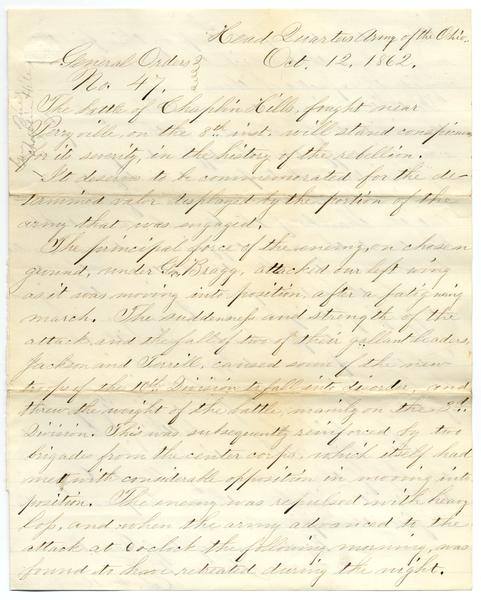 Head Quarters Army of the Ohio.
General Orders
Oct. 12, 1862.
No. 47.
The battle of Chaplin Hills, fought near
Perryville, on the 8th inst. will stand conspicuous
for its severity, in the history of the rebellion.
It deserves to be commemorated for the de-
termined valor displayed by the portion of the
army that was engaged.
The principal force of the enemy, on chosen
ground, under Bragg, attacked our left wing
as it was moving into position, after a fatiguing
march. The suddenness and strength of the
attack and the fall of two of their gallant leaders,
Jackson and Terrill, caused some of the new
troops of the 10th Division to fall into disorder, and
threw the weight of the battle, mainly on the 3d
Division. This was subsequently reinforced by two
brigades from the center corps, which itself had
met with considerable opposition in moving into
position. The enemy was repulsed with heavy
loss, and when the army advanced to the
attack at 6 o'clock the following morning, was
found to have retreated during the night.